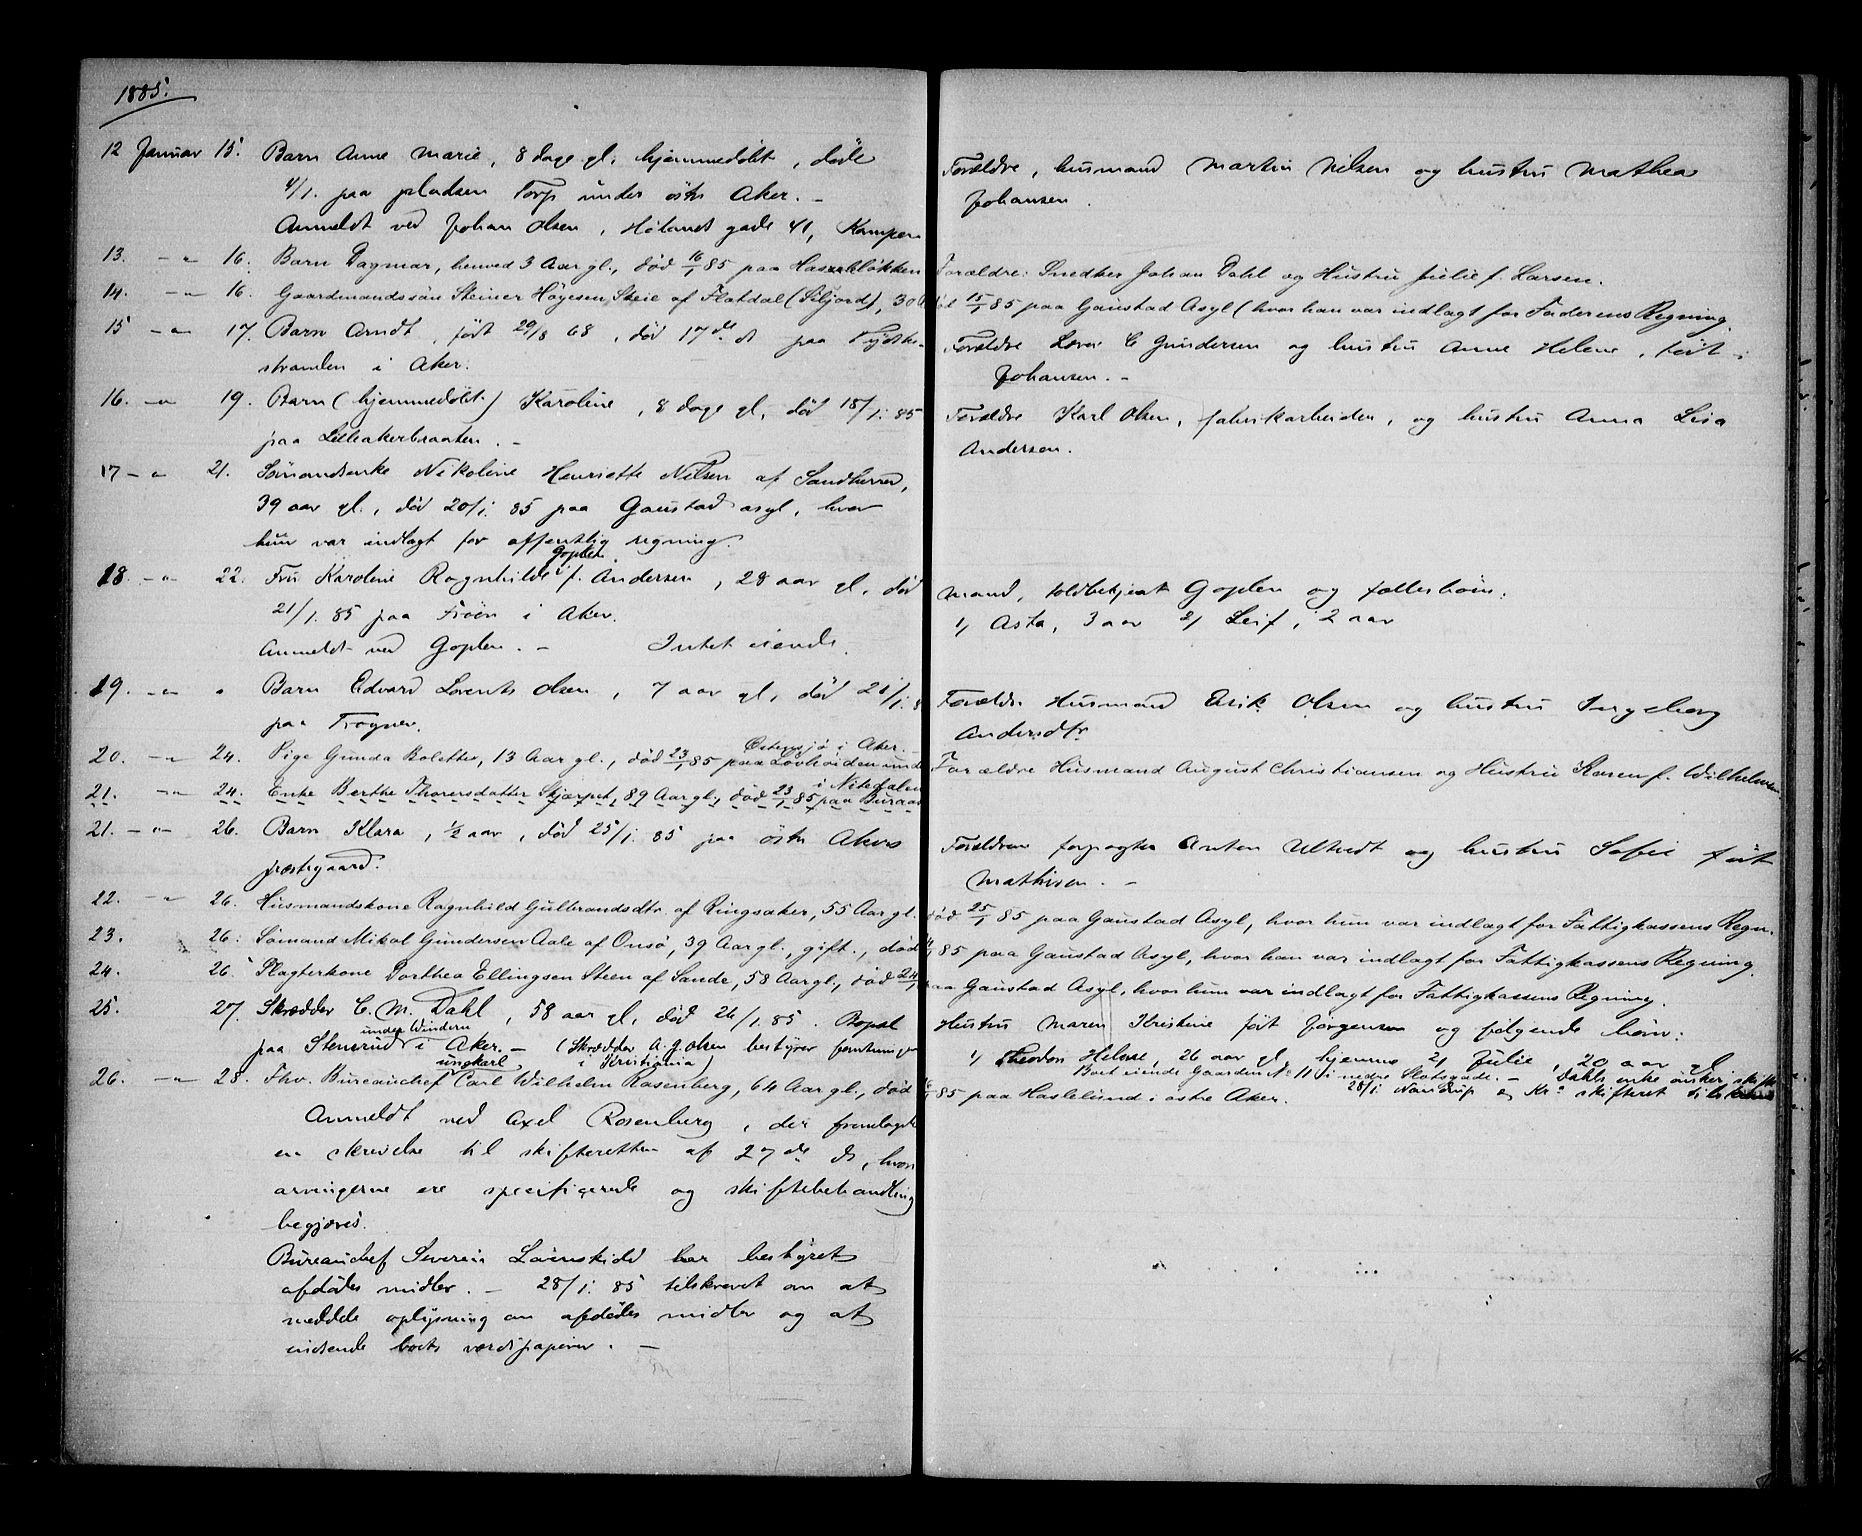 1885.
12 Januar 15. Barn Anne Marie, 8 dage gl. hjemmedöbt, döde
4/1. paa pladsen Torp under östr Aker. –
Anmeldt ved Johan Olsen, Hölands gade 41, Kampen
Forældre, husmand Martin Nilsen og hustru Mathea
Johansen.
13. – " – 16. Barn Dagmar, henved 3 Aar gl., död 16/1 85 paa Haslelökken
Forældre: Snedker Johan Dahl og Hustru Julie f. Larsen.
14. – " – 16. Gaardmandssön Steiner Högesen Steie af Flatdal (Siljord), 30
15/1 85 paa Gaustad Asyl (hvor han var indlagt for Faderens Regning.
15 – " – 17. Barn Arndt, födt 29/8 68, död 17de ds paa Tydske-
stranden i Aker.
Forældre C Gundersen og hustru Anne Helene, födt
Johansen. –
16. – " – 19. Barn (hjemmedöbt) Karoline, 8 dage gl, död 18/1. 85
paa Lilleakerbraaten. –
Forældre Karl Olsen, fabrikarbeider, og hustru Anna Lisa
Andersen.
17 – " – 21. Sömandsenke Nikoline Henriette Nilsen af Sandherred,
39 aar gl., död 20/1. 85 paa Gaustad asyl, hvor
hun var indlagt for offentlig regning.
Goplen
18. – " – 22. Fru Karoline Ragnhilde f. Andersen, 28 aar gl. död
21/1. 85 paa Fröen i Aker.
Anmeldt ved Goplen. – Intet eiende.
Mand, toldbetjent Goplen og fællesbörn:
1) Asta, 3 aar 2) Leif, 2 aar
19. – " – " Barn Edvard Lorents Olsen, 7 aar gl, död 21/1. 8
paa Frogner.
Forældre Husmand Erik Olsen og hustru Ingeborg
Andersdtr.
Östensjö i Aker. –
20. – " – 24. Pige Gunda Bolette, 13 Aar gl., död 23/1 85 paa under
Forældre Husmand August Christiansen og Hustru Karen f. Wilhelmsen.
i Nitedalen
21. – " – 24. Enke Berthe Thoresdatter Skjærpet, 89 Aar gl., död 23/1 85 paa Buraas
21. – " – 26. Barn Klara, 1/2 aar, död 25/1. 85 paa östr Akers
præstegaard.
Forældrene forpagter Anton Ultvedt og hustru Sofie födt
Mathisen. –
22. – " – 26. Husmandskone Ragnhild Gulbrandsdtr. af Ringsaker, 55 Aar gl.
död 25/1 85 paa Gaustad Asyl, hvor hun var indlagt for Fattigkassens Regn.
23. 26. Sömand Mikal Gundersen Aale af Onsö, 39 Aar gl., gift., död
85 paa Gaustad Asyl, hvor han var indlagt for Fattigkassens Regning.
24. 26. Slagterkone Dorthea Ellingsen Steen af Sande, 58 Aar gl., död 24/1
paa Gaustad Asyl, hvor hun var indlagt for Fattigkassens Regning.
25. 27. Skrædder C. M. Dahl, 58 aar gl, död 26/1. 85. Bopæl
under Vindern
paa Stensrud i Aker. – (Skrædder A. G. Olsen bestyrer forretningen
i Kristiania)
Hustru Maren Kristine födt Jörgensen og fölgende börn:
1) Theodor Helmse, 26 aar gl, hjemme 2) Julie, 20 aar gl
Boet eiende Gaarden No 11 i nedre Slotsgade. – Dahls enke önsker skifte
28/1. og Kra skifteret
ungkarl,
26. – " – 28. Fhv. Bureauchef Carl Wilhelm Rosenberg, 64 Aar gl., död
85 paa Haslelund i östre Aker.
Anmeldt ved Axel Rosenberg, der fremlagde
en skrivelse til skifteretten af 27de ds, hvori
arvingerne ere specificerede og skiftebehandling
begjæres.
Bureauchef Severin Lövenskiold har bestyret
afdödes midler. – 28/1. 85 tilskrevet om at
meddele oplysning om afdödes midler og at
indsende boets værdipapirer. –